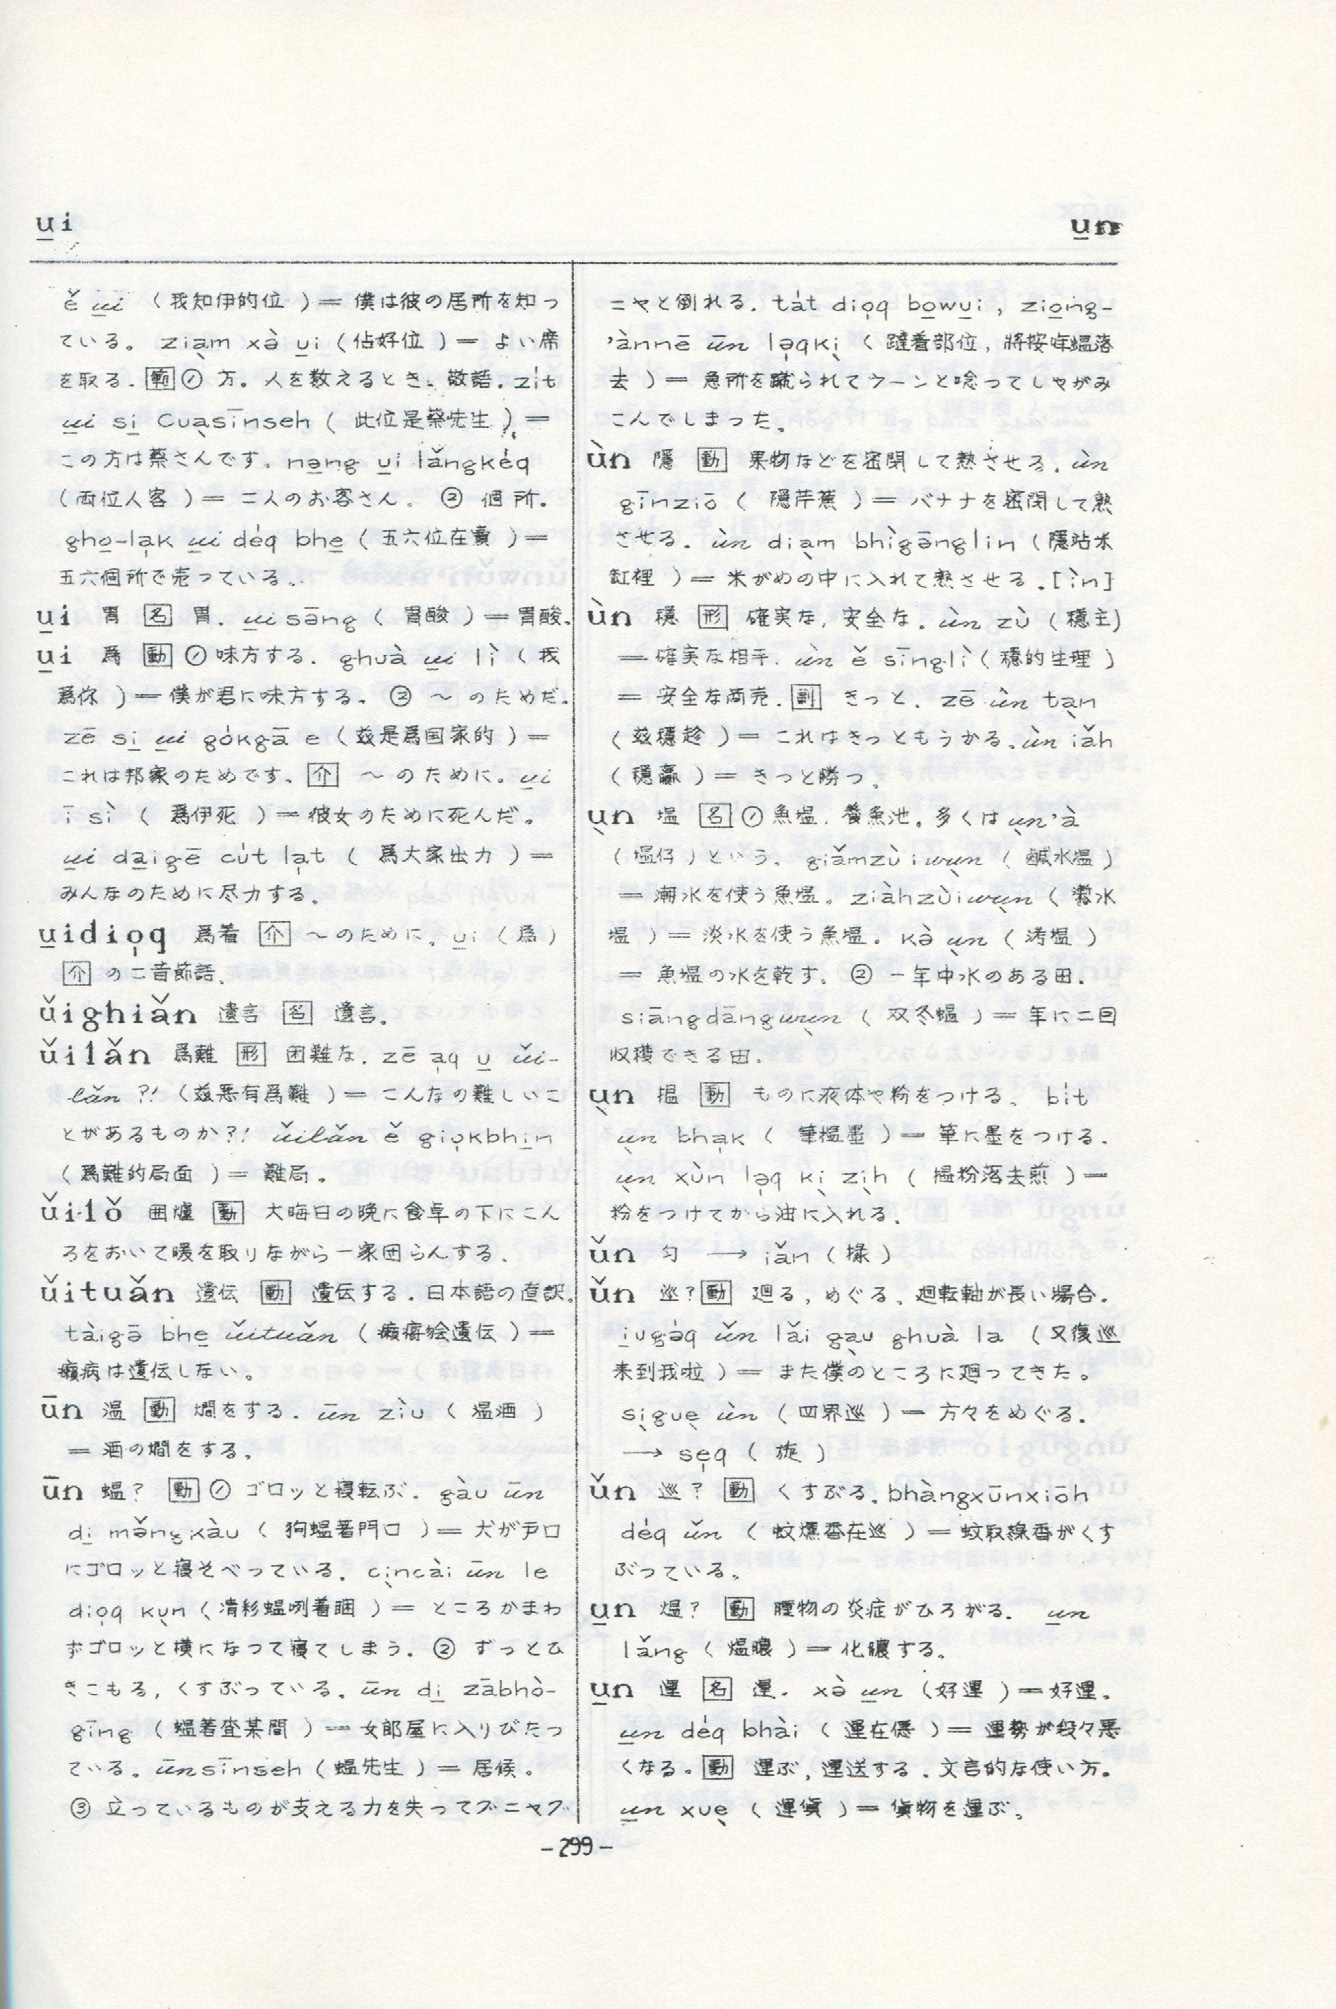 u̱i
u̱n
ě u̱i (我知伊的位)＝僕は彼の居所を知っ
ている。ziam xà u̱i (佔好位)＝よい席
を取る. 範① 方。人を数えるとき、敬語. zi̍t
u̱i si̱ Cuasīnseh (此位是蔡先生)＝
この方は蔡さんです。nəng u̱i lǎngkéq
(両位人客)＝二人のお客さん. ② 個所。
gho̱-la̱k u̱i déq bhe̱ (五六位在賣)＝
五六個所で売っている..
u̱i 胃 名 胃. u̱isāng (胃酸)＝胃酸.
u̱i 爲 動 ①味方する. ghuà u̱i lì (我
爲你)＝僕が君に味方する。② ～のためだ。
zē si̱ u̱i gókgā e (玆是爲国家的)＝
これは邦家のためです、介 ～のために。u̱i
ī sì (爲伊死)＝彼女のために死んだ。
u̱i da̱igē cút la̍t (爲大家出力)＝
みんなのために尽力する。
u̱idio̍q 爲着 介 ～のために. u̱i (爲)
介 の二音節語.
ǔighiǎn 遺言 名 遺言.
ǔilǎn 爲難 形 困難な. zē a̍q u̱ ǔi-
lǎn ?! (玆悪有爲難)＝こんなの難しいこ
とがあるものか?! ǔilǎn ě gio̍kbhi̱n
(爲難的局面)＝難局.
ǔilǒ 囲爐 動 大晦日の晩に食卓の下にこん
ろをおいて暖を取りながら一家団らんする.
ǔituǎn 遺伝 動 遺伝する. 日本語の直訳.
tàigē bhe̱ ǔituǎn (癩𤺪獪遺伝)＝
癩病は遺伝しない。
ūn 温 動 燗をする. ūn ziù (温酒)
＝酒の燗をする.
ūn 蝹? 動 ① ゴロッと寝転ぶ. gàu ūn
di̱ měngkàu (狗蝹着門口)＝犬が戸口
にゴロッと寝そべっている. cìncài ūn le
dio̍q kun (凊彩蝹咧着睏)＝ところかまわ
ずゴロッと横になって寝てしまう. ② ずっとひ
きこもる, くすぶっている. ūn di̱ zābhò-
gīng (蝹着查某間)＝女郎屋に入りびたっ
ている. ūnsīnseh (蝹先生)＝居候。
③ 立っているものが支える力を失ってグニャグ
ニャと倒れる. tát dio̍q bo̱wu̱i, ziong-
'ànnē ūn lə̍qki (躂着部位, 將按哖蝹落
去)＝急所を蹴られてウーンと唸ってしゃがみ
こんでしまった。
ùn 隱 動 果物などを密閉して熟させる. ùn
gīnziō (隱芹蕉)＝バナナを密閉して熟
させる. ùn diam bhìgānglin (隱站米
缸裡)＝米がめの中に入れて熟させる. [ìn]
ùn 穩 形 確実な, 安全な. ùn zù (穩主)
＝確実な相手. ùn ě sīnglì (穩的生理)
＝安全な商売. 副 きっと. zē ùn tan
(玆穩趁)＝これはきっともうかる. ùn iǎh
(穩贏)＝きっと勝つ.
un 塭 名 ①魚塭. 養魚池。多くは un'à
(塭仔)という. giǎmzùiwun (鹹水塭)
＝潮水を使う魚塭。ziàhzùiwun (饗水
塭)＝淡水を使う魚塭. kà un (洘塭)
＝魚塭の水を乾す. ② 一年中水のある田.
siāngdāngwun (双冬塭)＝年に二回
収穫できる田.
un 搵 動 ものに液体や粉をつける. bít
un bha̍k (筆搵墨)＝筆に墨をつける.
un xùn lə̍q ki zih (搵粉落去煎)＝
粉をつけてから油に入れる.
ǔn 匀 → iǎn (搽)
ǔn 巡? 動 廻る, めぐる. 廻転軸が長い場合.
i̱ugə̍q ǔn lǎi gau ghuà la (又復巡
来到我啦)＝また僕のところに廻ってきた。
sigue ǔn (四界巡)＝方々をめぐる.
→ se̍q (旋)
ǔn 巡? 動 くすぶる. bhàngxūnxiōh
déq ǔn (蚊燻香在巡)＝蚊取線香がくす
ぶっている。
u̱n 熅? 動 腫物の炎症がひろがる. u̱n
lǎng (熅膿)＝化膿する。
u̱n 運 名 運. xà u̱n (好運)＝好運。
u̱n déq bhài (運在僫)＝運勢が段々悪
くなる。動 運ぶ, 運送する. 文言的な使い方.
u̱n xue (運貨)＝貨物を運ぶ.
-299-